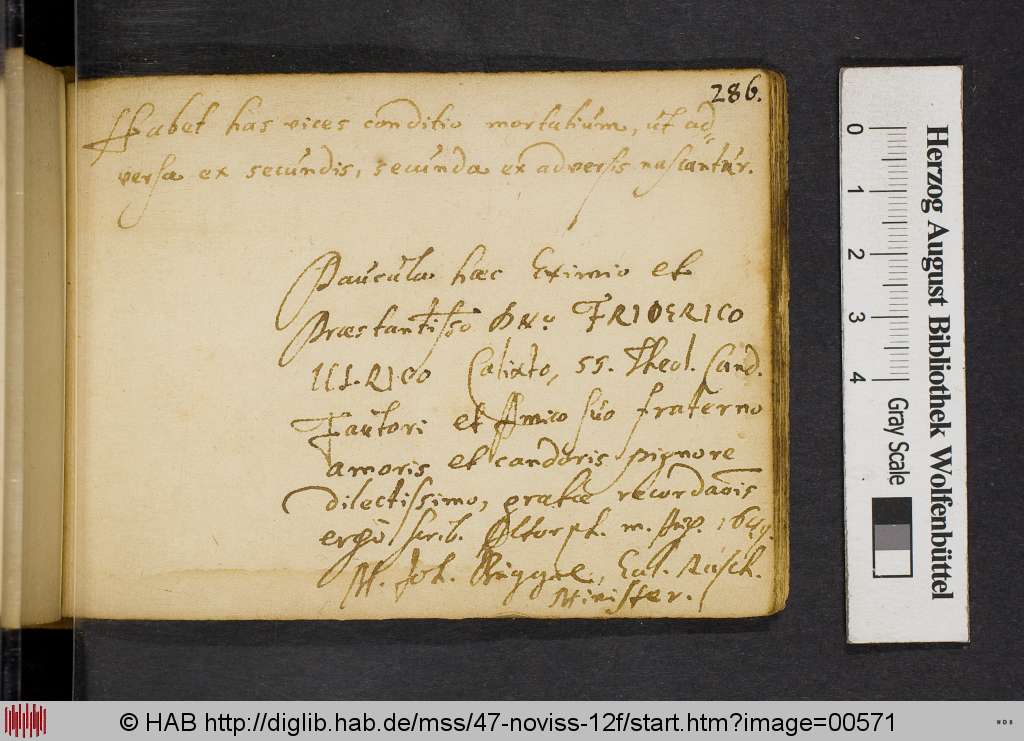 286.
Habet has vices conditio mortalium, ut ad=
versa ex secundis, secunda ex adversis nascantur.
Paucula haec Eximio et
Praestantisso Dno FRIDERICO
ULRICO Calixto, SS. Theol. Cand.
Fautori et Amico suo fraterno
amoris et candoris pignore
dilectissimo, gratae recordaōis
ergò scrib. Altorph. m. Aug.
M. Joh. Eccl.
Minister.
0
1
2
3
4
Gray Scale
Herzog August Bibliothek Wolfenbüttel
© HAB http://diglib.hab.de/mss/47-noviss-12f/start.htm?image=00571